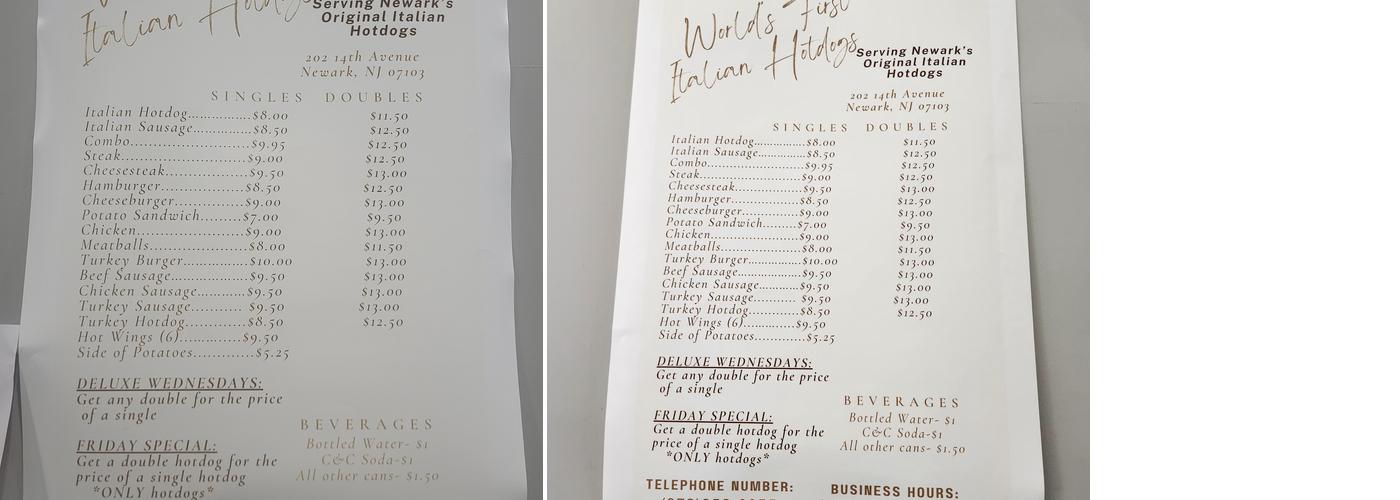 Italian
Serving Newark's
Original Italian
Hotdogs
202 14th Avenue
Newark, NJ 07103
SINGLES DOUBLES
Italian Hotdog...............$8.00 $11.50
Italian Sausage..............$8.50 $12.50
Combo.............................$9.95 $12.50
Steak..............................$9.00 $12.50
Cheesesteak....................$9.50 $13.00
Hamburger...................$8.50 $12.50
Cheeseburger................$9.00 $13.00
Potato Sandwich.........$7.00 $9.50
Chicken..........................$9.00 $13.00
Meatballs.......................$8.00 $11.50
Turkey Burger..............$10.00 $13.00
Beef Sausage.................$9.50 $13.00
Chicken Sausage............$9.50 $13.00
Turkey Sausage........... $9.50 $13.00
Turkey Hotdog..............$8.50 $12.50
Hot Wings (6)...............$9.50
Side of Potatoes.............$5.25
DELUXE WEDNESDAYS:
Get any double for the price
of a single
BEVERAGES
Bottled Water- $1
C&C Soda-$1
All other cans- $1.50
FRIDAY SPECIAL:
Get a double hotdog for the
price of a single hotdog
*ONLY hotdogs*
World's First
Italian Hotdogs
Serving Newark's
Original Italian
Hotdogs
202 14th Avenue
Newark, NJ 07103
SINGLES DOUBLES
Italian Hotdog...............$8.00 $11.50
Italian Sausage..............$8.50 $12.50
Combo.............................$9.95 $12.50
Steak..............................$9.00 $12.50
Cheesesteak....................$9.50 $13.00
Hamburger...................$8.50 $12.50
Cheeseburger................$9.00 $13.00
Potato Sandwich.........$7.00 $9.50
Chicken..........................$9.00 $13.00
Meatballs.......................$8.00 $11.50
Turkey Burger..............$10.00 $13.00
Beef Sausage.................$9.50 $13.00
Chicken Sausage............$9.50 $13.00
Turkey Sausage........... $9.50 $13.00
Turkey Hotdog..............$8.50 $12.50
Hot Wings (6)...............$9.50
Side of Potatoes.............$5.25
DELUXE WEDNESDAYS:
Get any double for the price
of a single
BEVERAGES
Bottled Water- $1
C&C Soda-$1
All other cans- $1.50
FRIDAY SPECIAL:
Get a double hotdog for the
price of a single hotdog
*ONLY hotdogs*
TELEPHONE NUMBER: BUSINESS HOURS: